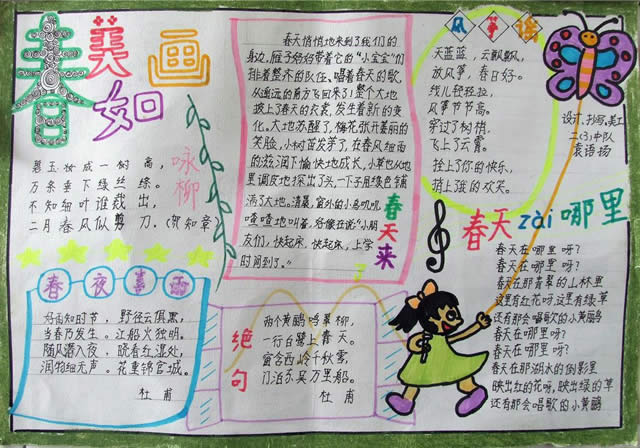 春美如画
咏柳
碧玉妆成一树高,
万条垂下绿丝绦。
不知细叶谁裁出,
二月春风似剪刀。(贺知章)
春夜喜雨
好雨知时节,野径云俱黑,
当春乃发生。江船火独明。
随风潜入夜,晓看红湿处,
润物细无声。花重锦官城。
杜甫
春天悄悄地来到了我们的
身边,雁子妈妈带着它的“小宝宝”们
排着整齐的队伍、唱着春天的歌,
从遥远的南方飞回来了!整个大地
披上了春天的衣裳,发生着新的变
化。大地苏醒了,梅花张开美丽的
笑脸,小树苗发芽了,在春风细雨
的滋润下愉快地成长,小草也从地
里调皮地探出了头,一下子用绿色铺
满了大地。清晨,窗外的小鸟叽叽
喳喳地叫着,好像在说“小朋
友们,快起床、快起床,上学
时间到了。”
春天来
绝句
两个黄鹂鸣翠柳,
一行白鹭上青天。
窗含西岭千秋雪,
门泊东吴万里船。
杜甫
风筝谣
天蓝蓝,云飘飘,
放风筝,春日好。
线儿轻轻拉,
风筝节节高。
穿过了树梢,
飞上了云霄。
拴上了你的快乐,
捎上我的欢笑。
设计、抄写、美工
二(3)中队
袁语扬
春天zài哪里
春天在哪里呀?
春天在哪里呀?
春天在那青翠的山林里
这里有红花呀这里有绿草
还有那会唱歌的小黄鹂
春天在哪里呀?
春天在哪里呀?
春天在那湖水的倒影里
映出红的花呀,映出绿的草
还有那会唱歌的小黄鹂